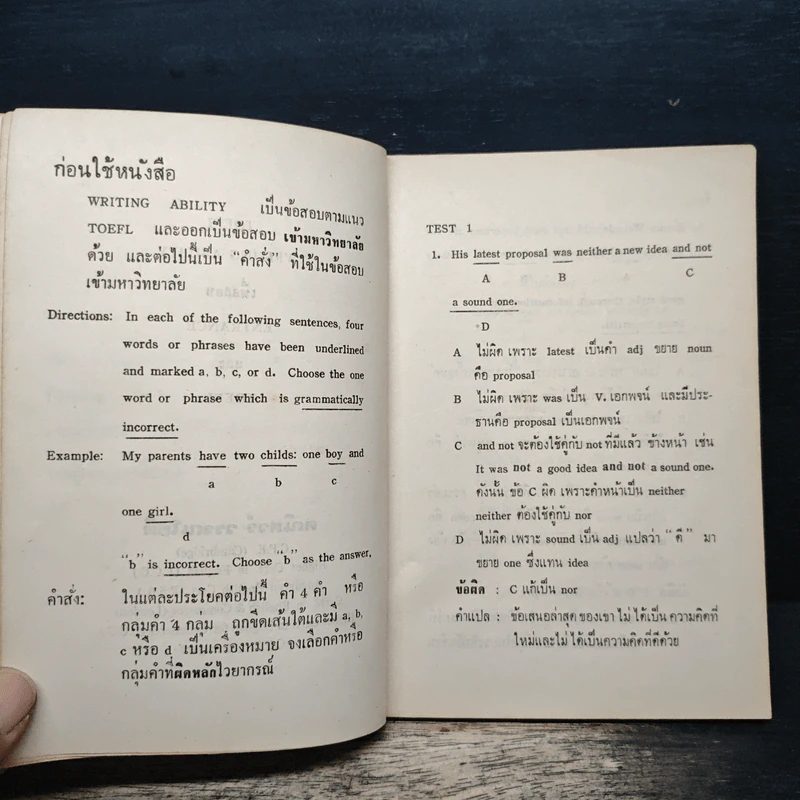 ก่อนใช้หนังสือ
WRITING ABILITY เป็นข้อสอบตามแนว
TOEFL และออกเป็นข้อสอบ เข้ามหาวิทยาลัย
ด้วย และต่อไปนี้เป็น “คำสั่ง” ที่ใช้ในข้อสอบ
เข้ามหาวิทยาลัย
Directions: In each of the following sentences, four
words or phrases have been underlined
and marked a, b, c, or d. Choose the one
word or phrase which is grammatically
incorrect.
Example: My parents have two childs: one boy and
a b c
one girl.
d
“b” is incorrect. Choose “b” as the answer.
คำสั่ง: ในแต่ละประโยคต่อไปนี้ คำ 4 คำ หรือ
กลุ่มคำ 4 กลุ่ม ถูกขีดเส้นใต้และมี a, b,
c หรือ d เป็นเครื่องหมาย จงเลือกคำหรือ
กลุ่มคำที่ผิดหลักไวยากรณ์
TEST 1
1. His latest proposal was neither a new idea and not
A B A C
a sound one.
D
A ไม่ผิด เพราะ latest เป็นคำ adj ขยาย noun
คือ proposal
B ไม่ผิด เพราะ was เป็น V. เอกพจน์ และมีประ-
ธานคือ proposal เป็นเอกพจน์
C and not จะต้องใช้คู่กับ not ที่มีแล้ว ข้างหน้า เช่น
It was not a good idea and not a sound one.
ดังนั้น ข้อ C ผิด เพราะคำหน้าเป็น neither
neither ต้องใช้คู่กับ nor
D ไม่ผิด เพราะ sound เป็น adj แปลว่า “ดี” มา
ขยาย one ซึ่งแทน idea
ข้อผิด : C แก้เป็น nor
คำแปล : ข้อเสนอล่าสุดของเขา ไม่ได้เป็น ความคิดที่
ใหม่และไม่ได้เป็นความคิดที่ดีด้วย